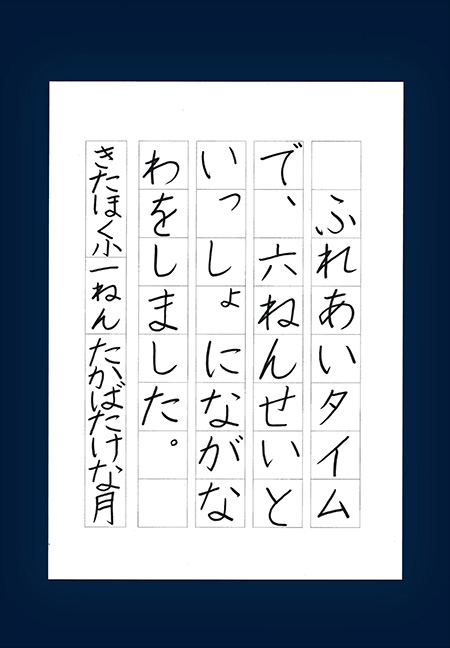 ふれあいタイム
で、六ねんせいと
いっしょにながな
わをしました。
きたほく小一ねんたかばたけな月